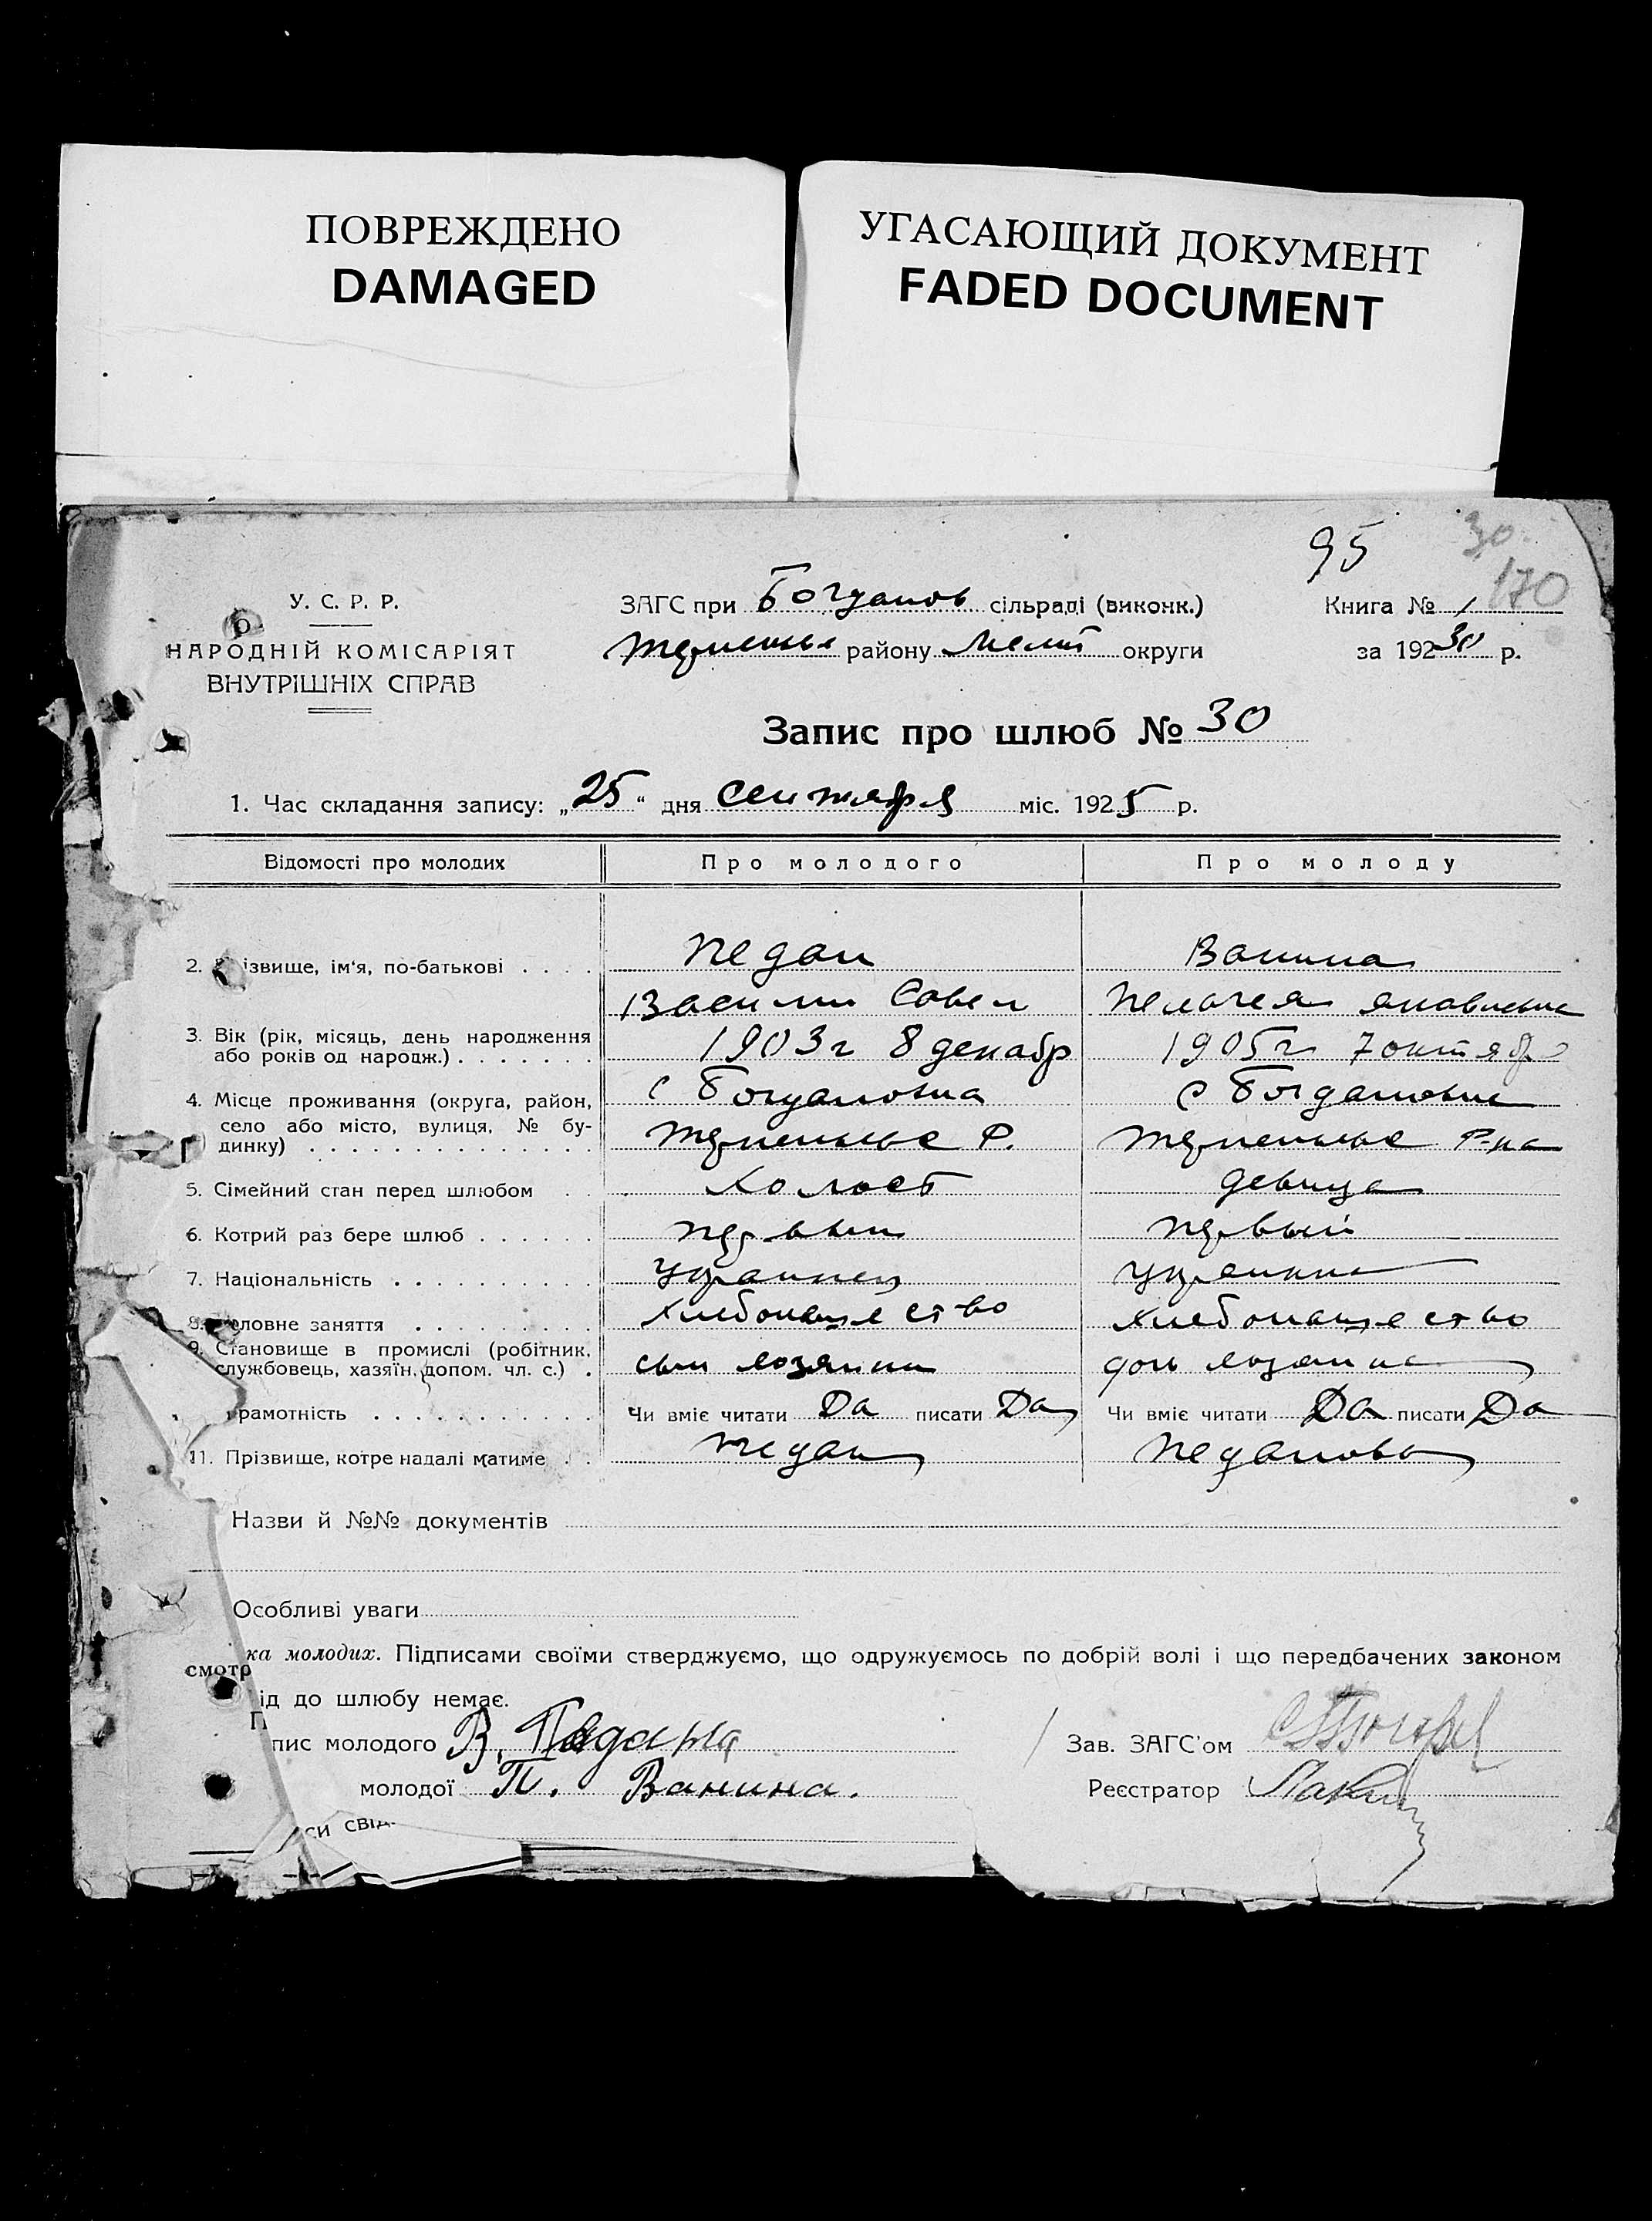 ПОВРЕЖДЕНО
DAMAGED
УГАСАЮЩИЙ ДОКУМЕНТ
FADED DOCUMENT
95
30
170
У. С. Р. Р.
НАРОДНІЙ КОМІСАРІЯТ
ВНУТРІШНІХ СПРАВ
ЗАГС при Богданов сільраді (виконк.)
району Мелит округи
Книга № 1
за 19230 р.
Запис про шлюб № 30
1. Час складання запису: „25“ дня сентября міс. 1925 р.
Відомості про молодих Про молодого Про молоду
2. ізвище, ім'я, по-батькові Педан Ванина
Васили Савел Пелагея Яковлевна
3. Вік (рік, місяць, день народження
або років од народж.) 1903г 8 декабр 1905г 7 октябр
4. Місце проживання (округа, район, с Богдановка с Богдановка
село або місто, вулиця, № бу-
динку) Р. Р-на
5. Сімейний стан перед шлюбом Холост девица
6. Котрий раз бере шлюб первый первый
7. Національність Украинец украинка
8. ловне заняття хлебопашество хлебопашество
9. Становище в промислі (робітник,
службовець, хазяїн, допом. чл. с.) сын хозяина дочь хозяина
рамотність Чи вміє читати Да писати Да Чи вміє читати Да писати Да
11. Прізвище, котре надалі матиме Педан Педанова
Назви й №№ документів
Особливі уваги
ка молодих. Підписами своїми стверджуємо, що одружуємось по добрій волі і що передбачених законом
смотр
ід до шлюбу немає.
П
пис молодого В. Педана
Зав. ЗАГС'ом
молодої П. Ванина.
Реєстратор
си сві